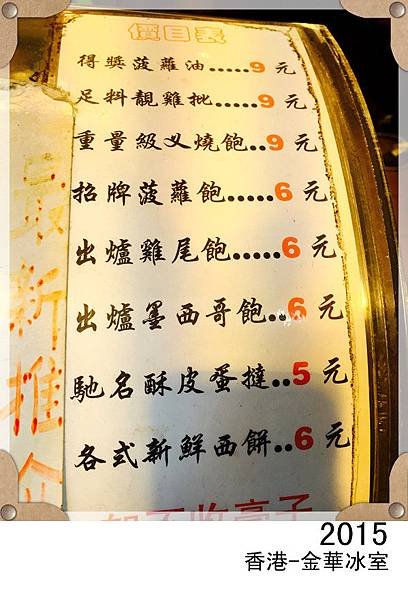 價目表
得獎菠蘿油.....9 元
足料靚雞批.....9 元
重量級义燒飽..9 元
招牌菠蘿飽.....6 元
出爐雞尾飽.....6 元
出爐墨西哥飽..6 元
馳名酥皮蛋撻..5 元
各式新鮮西餅..6 元
最新推介
2015
香港-金華冰室